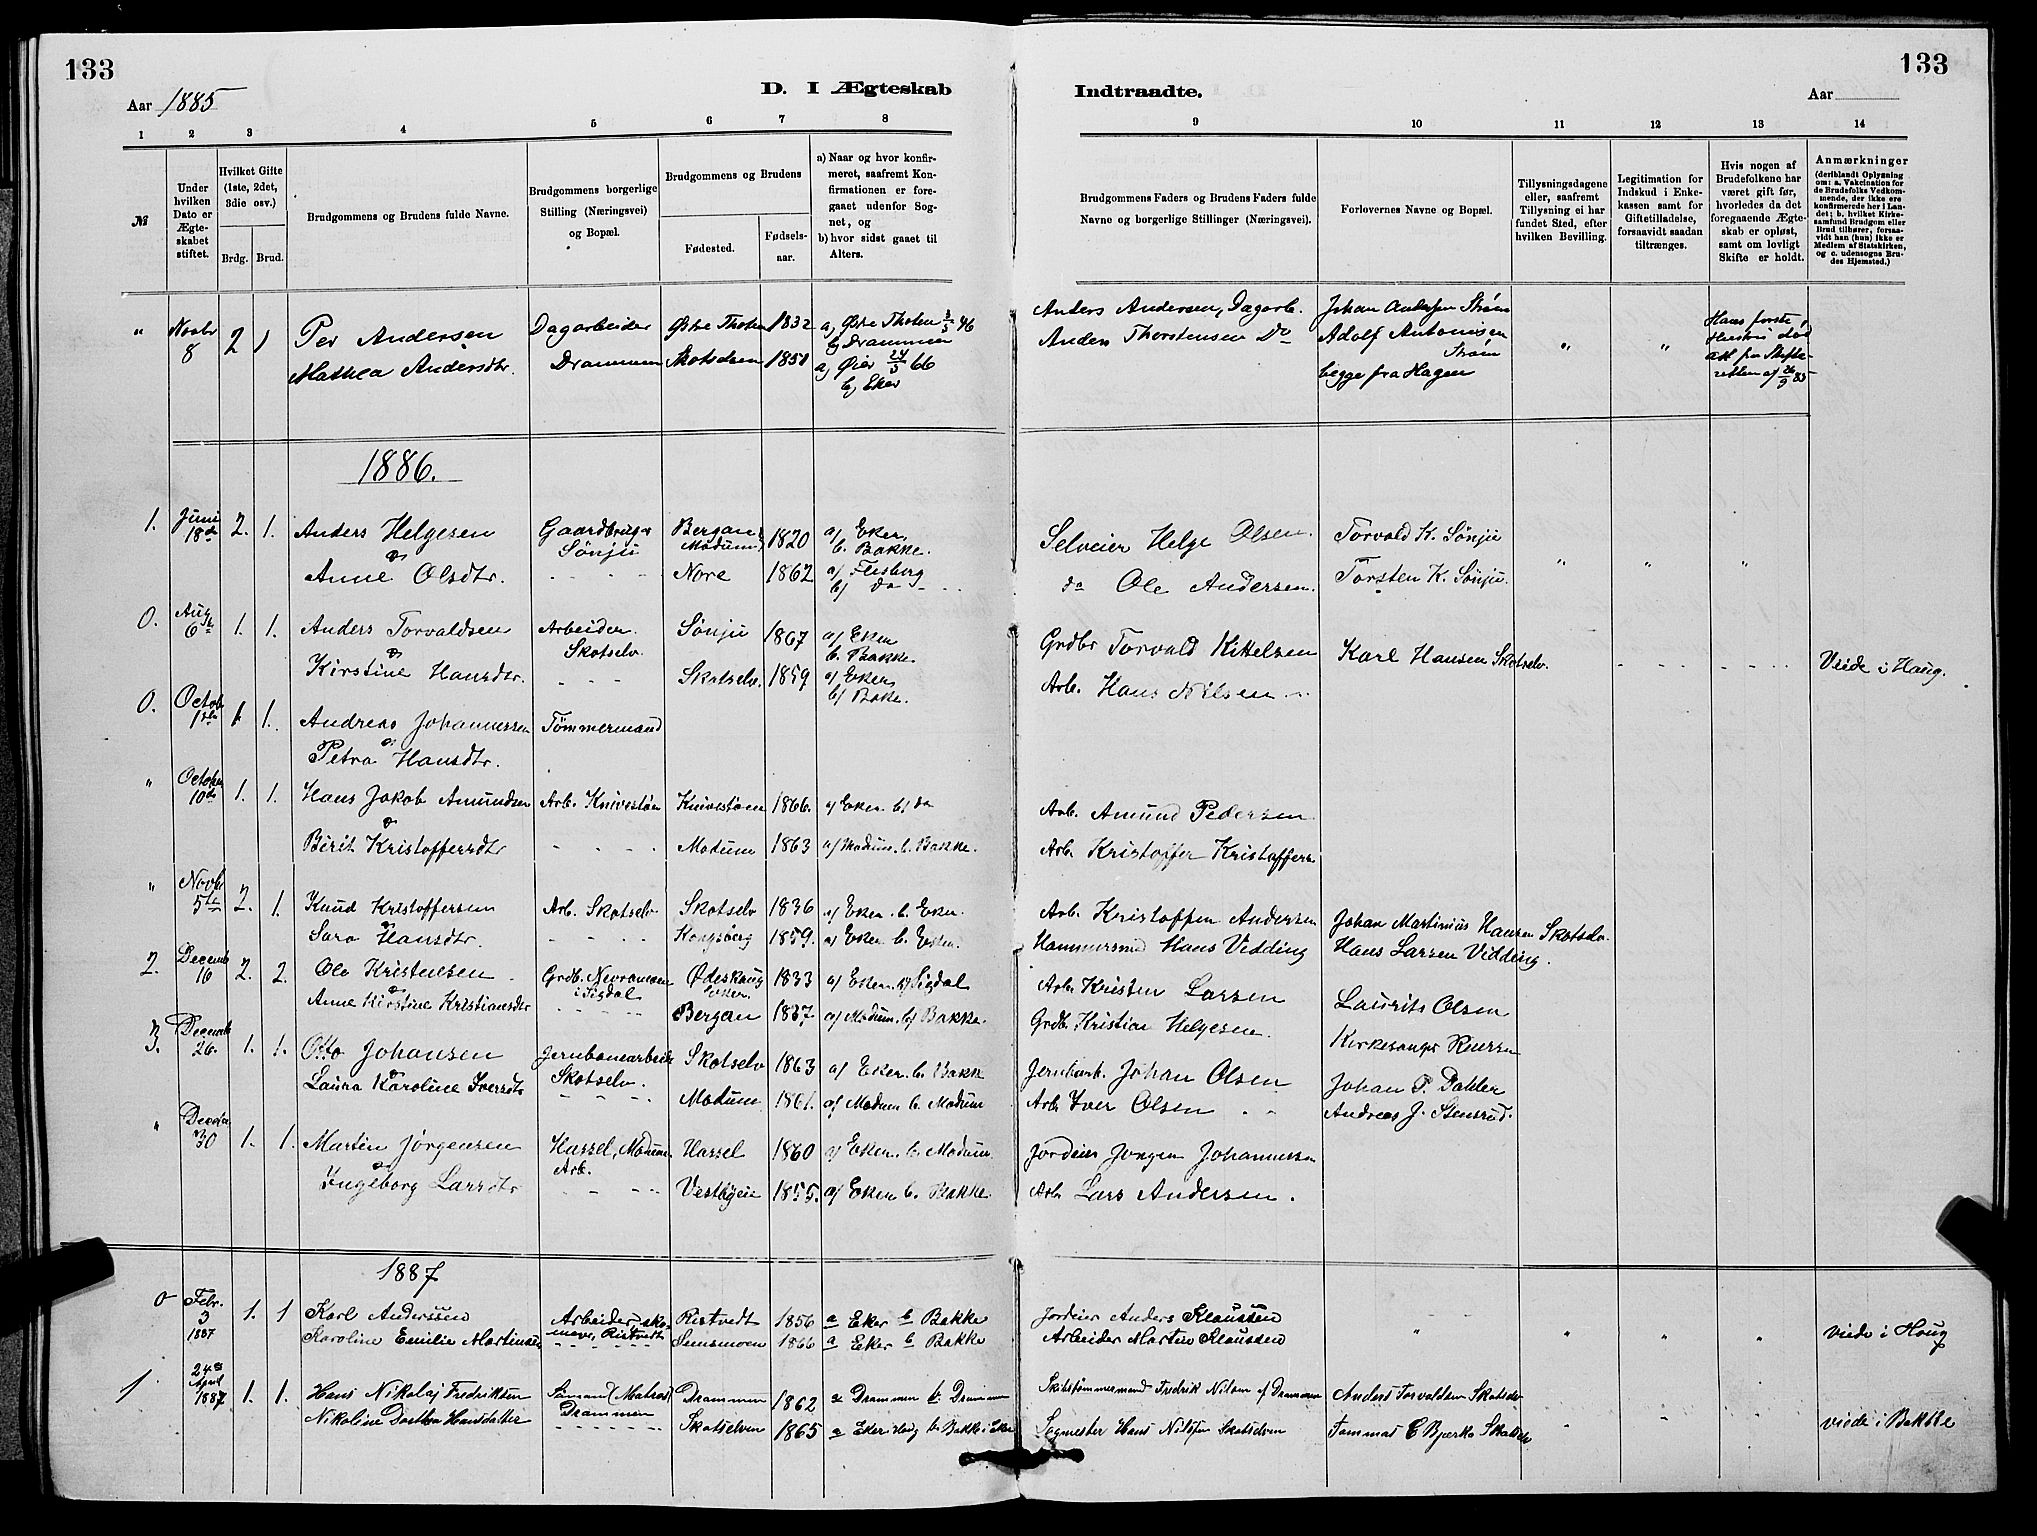 133
133
D. I Ægteskab Indtraadte.
Aar 1885
Aar
1 2 3 4 5 6 7 8 9 10 11 12 13 14
№
Under hvilken Dato er Ægteskabet stiftet.
Hvilket Gifte (1ste, 2det, 3die osv.)
Brdg. Brud.
Brudgommens og Brudens fulde Navne.
Brudgommens borgerlige Stilling (Næringsvei) og Bopæl.
Brudgommens og Brudens
Fødested. Fødselsaar.
a) Naar og hvor konfirmeret, saafremt Konfirmationen er foregaaet udenfor Sognet, og
b) hvor sidst gaaet til Alters.
Brudgommens Faders og Brudens Faders fulde Navne og borgerlige Stillinger (Næringsvei).
Forlovernes Navne og Bopæl.
Tillysningsdagene eller, saafremt Tillysning ei har fundet Sted, efter hvilken Bevilling.
Legitimation for Indskud i Enkekassen samt for Giftetilladelse, forsaavidt saadan tiltrænges.
Hvis nogen af Brudefolkene har været gift før, hvorledes da det foregaaende Ægteskab er opløst, samt om lovligt Skifte er holdt.
Anmærkninger (deriblandt Oplysning om: a. Vakcination for de Brudefolks Vedkommende, der ikke ere konfirmerede her i Landet; b. hvilket Kirkesamfund Brudgom eller Brud tilhører, forsaavidt han (hun) ikke er Medlem af Statskirken, og c. udensogns Brudes Hjemsted.)
" Novbr 8 2 1 Per Andersen Dagarbeider Østre Thoten 1832 a) Østre Thoten 46 b) Drammen Anders Andersen, Dagarb. Johan Andersen Strøm
Mathea Andersdtr. Drammen Skotselven 1851 a) Øier 24/5 66 b) Eker Anders Thorstensen Do Adolf Antonisen Strøm begge fra Hagen " "
Hans første Hustru død
Att fra Skifteretten af 26/9 85
1886.
1. Juni 18de 2. 1. Anders Helgesen Gaardbruger Sønju Bergan Modum 1820 a/ Eker b. Bakke. Selveier Helge Olsen. Torvald K. Sønju
& Anne Olsdtr. Nore 1862 a/ Flesberg b/ do do Ole Andersen. Torsten K. Sønju. " " "
0. Aug 6te 1. 1. Anders Torvaldsen Arbeider Skotselv. Sønju 1867 a/ Eker b. Bakke. Grdbr Torvald Kittelsen Karl Hansen Skotselv. Viede i Haug.
& Kirstine Hansdtr. Skotselv. 1859 a/ Eker b/ Bakke. Arb. Hans Nilsen
0. Octob 1ste 1. 1. Andreas Johannessen Tømmermand
& Petra Hansdtr.
" October 10de 1. 1. Hans Jakob Amundsen Arb. Knivestøen Knivestøen 1866. a/ Eker b/ do Arb. Amund Pedersen
& Birit Kristoffersdtr Modum 1863 a/ Modum. b. Bakke. Arb. Kristoffer Kristoffers
" Novbr 5te 2. 1. Knud Kristoffersen Arb. Skotselv Skotselv 1836 a/ Eker. b. Eker. Arb. Kristoffer Andersen Johan Martinius Hansen Skotselv
& Sara Hansdtr. Kongsberg 1859. a/ Eker b. Eker. Hammersmed Hans Vidding Hans Larsen Vidding.
2. Decemb 16 2. 2. Ole Kristensen Grdb. Nevramoen i Sigdal Ødeskaug Eker. 1833 a/ Eker. b/ Sigdal Arb. Kristen Larsen Laurits Olsen
& Anne Kirstine Kristiansdtr Bergan 1837 a/ Modum. b/ Bakke. Grdb. Kristian Helgesen. Kirkesanger
3. Decemb 26. 1. 1. Otto Johansen Jernbanearbeid Skotselv. Skotselv 1863 a/ Eker. b. Bakke Jernbarb. Johan Olsen Johan P. Dahler
& Laura Karoline Iversdtr Modum 1861. a/ Modum b. Modum Arb. Iver Olsen Andreas J. Stensrud.
" Decbr 30 1. 1. Martin Jørgensen Hassel, Modum Arb. Hassel 1860 a/ Eker. b. Modum. Jordeier Jørgen Johannessen
& Ingeborg Larsdtr Vestbyeie 1855. a/ Eker b. Bakke Arb Lars Andersen.
1887
0 Febr. 3 1887 1. 1 Karl Anderssen Arbeider, skomager, Ristvedt Ristvedt 1856 a Eker b Bakke Jordeier Anders Klaussen
Karoline Emilie Martinsen Semsmoen 1866 a Eker b Bakke Arbeider Martin Klaussen " " " " viede i Houg
1 24de April 1887 1. 1. Hans Nikolaj Fredriksen Sømand (Matros) Drammen Drammen 1862 a Drammen b Drammen Skibstømmermand Fredrik Nilsen af Drammen Anders Torvaldsen Skotselv
Nikoline Dorthea Hansdatter Skotselven 1865 a Eker Houg b Bakke i Eker Sagmester Hans Nilsen Skotselven Tommas E Bjerke Skotselv viede i Bakke